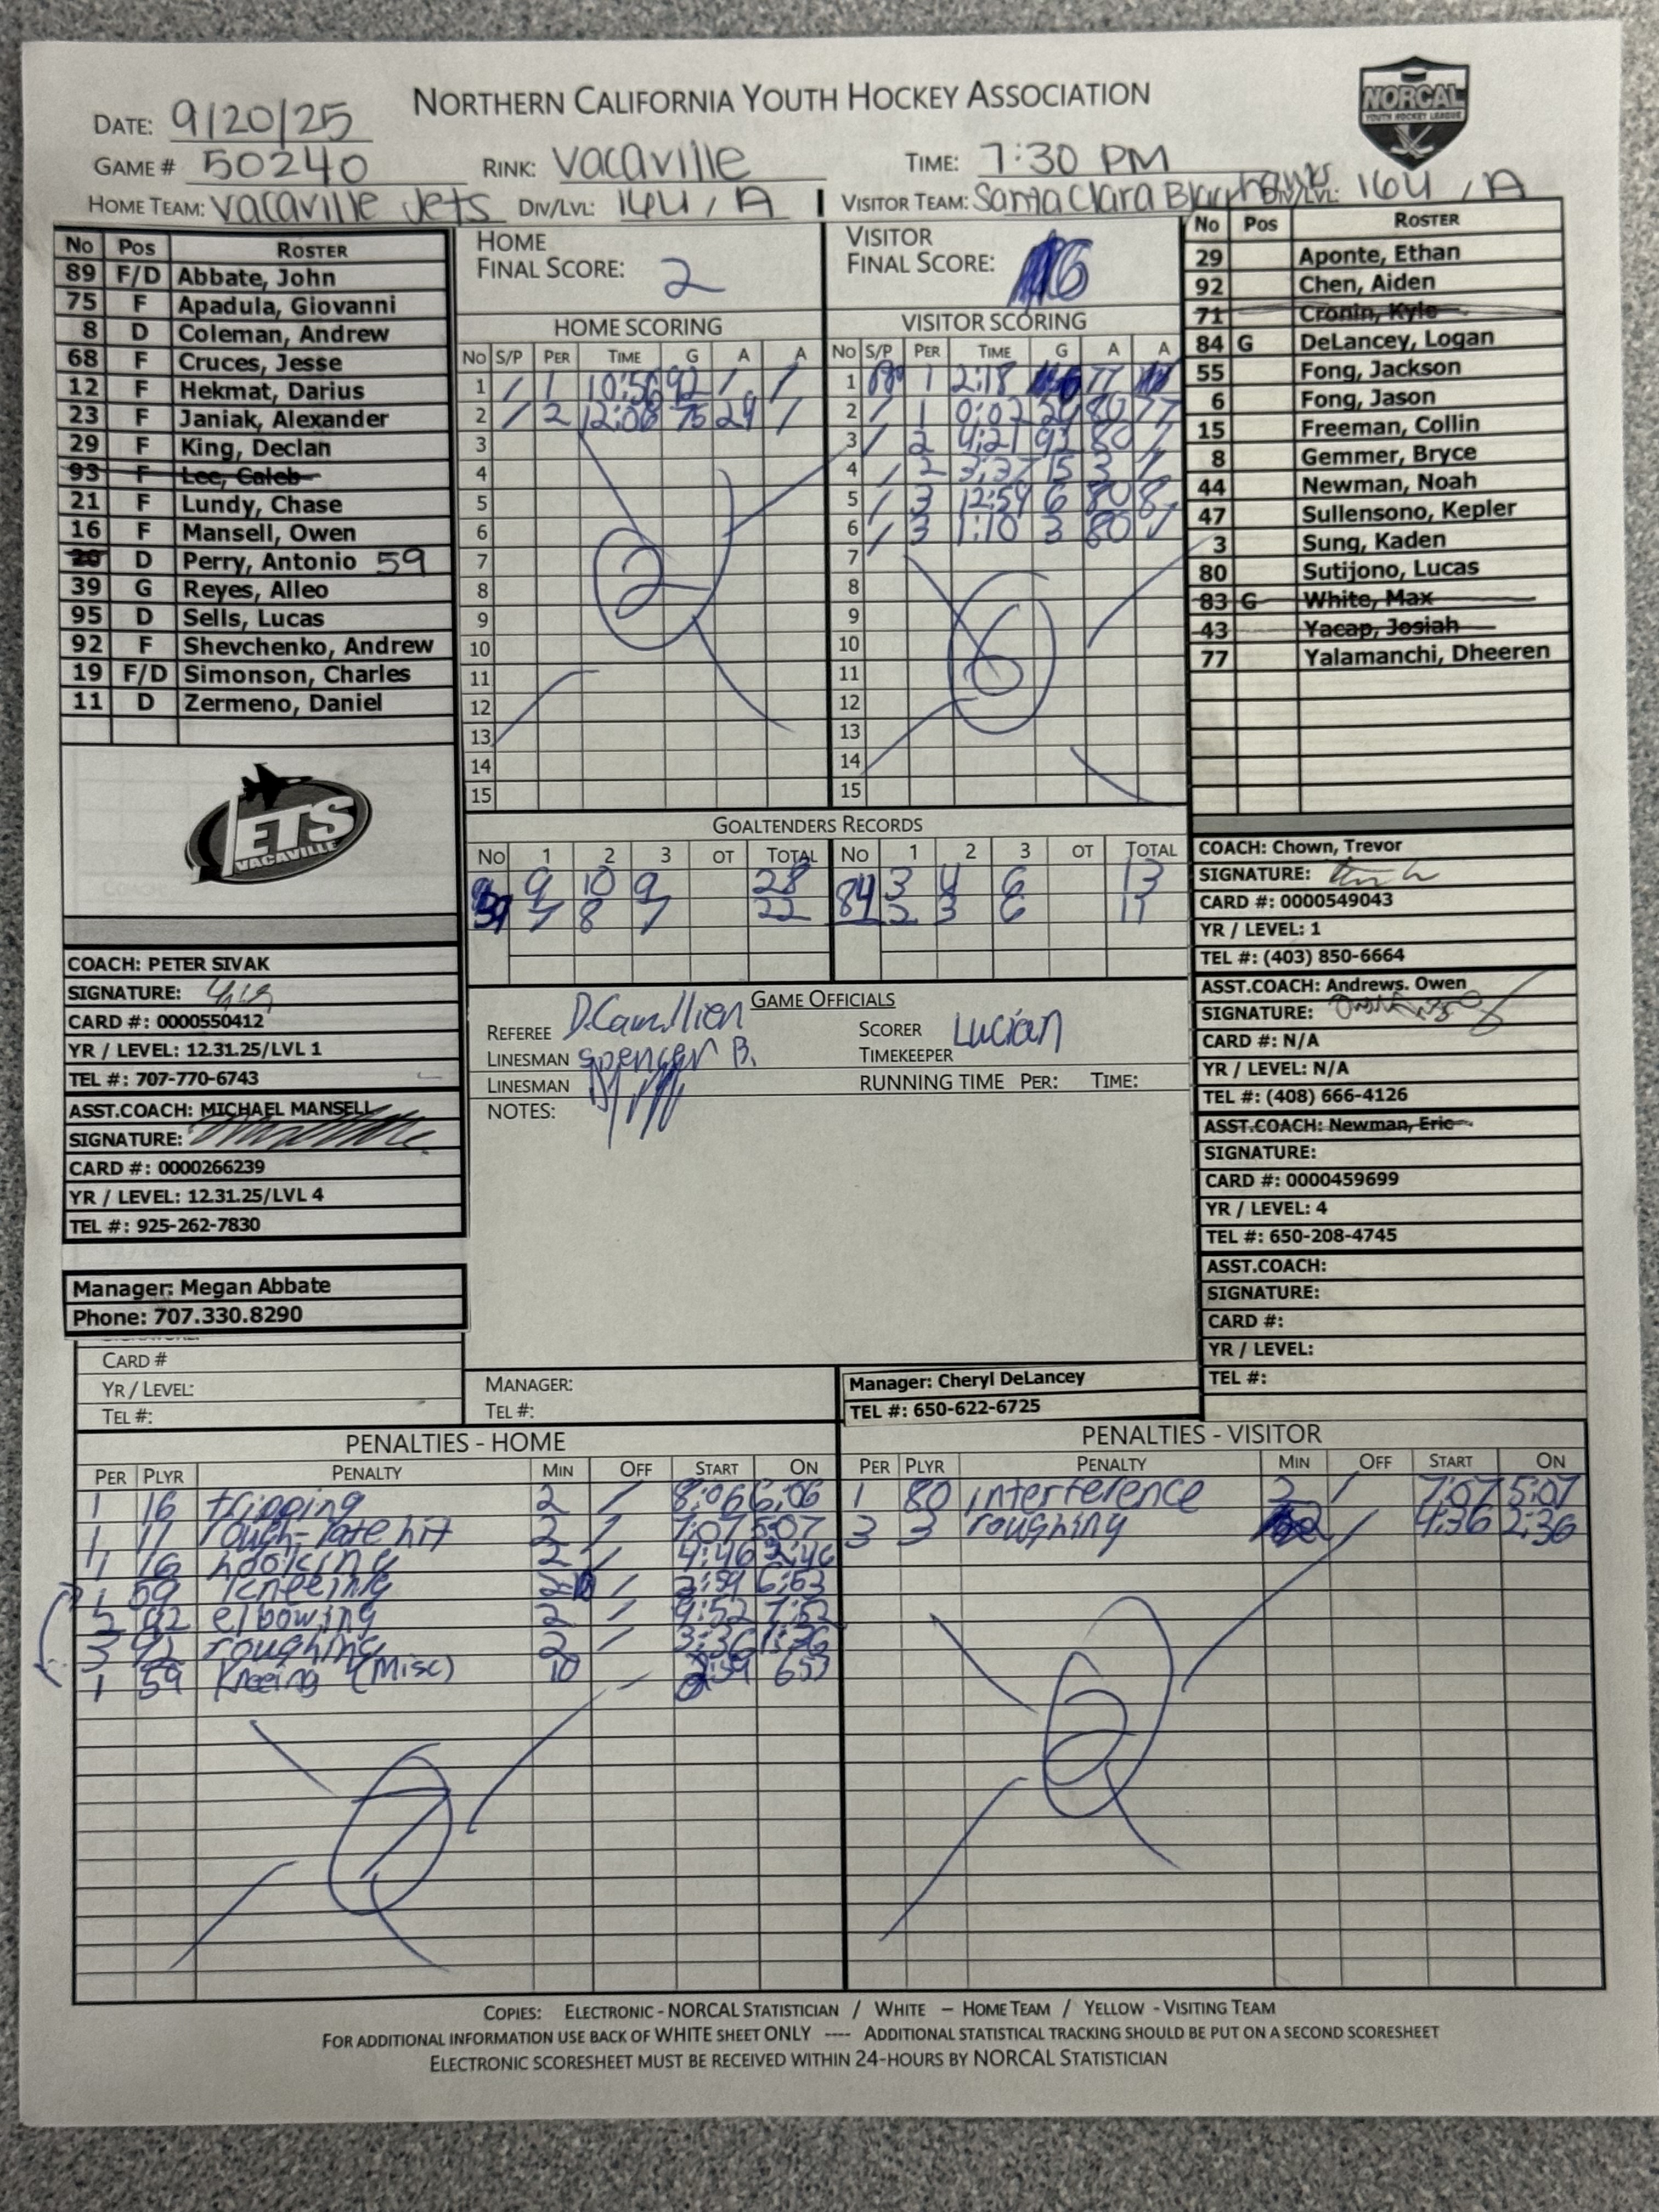 NORTHERN CALIFORNIA YOUTH HOCKEY ASSOCIATION
NORCAL
YOUTH HOCKEY LEAGUE
DATE: 9/20/25
GAME # 50240 RINK: Vacaville TIME: 7:30 PM
HOME TEAM: Vacaville Jets DIV/LVL: 16U / A VISITOR TEAM: Santa Clara Blackhawks DIV/LVL: 16U / A
No Pos ROSTER
89 F/D Abbate, John
75 F Apadula, Giovanni
8 D Coleman, Andrew
68 F Cruces, Jesse
12 F Hekmat, Darius
23 F Janiak, Alexander
29 F King, Declan
93 F Lee, Caleb
21 F Lundy, Chase
16 F Mansell, Owen
20 D Perry, Antonio 59
39 G Reyes, Alleo
95 D Sells, Lucas
92 F Shevchenko, Andrew
19 F/D Simonson, Charles
11 D Zermeno, Daniel
JETS
VACAVILLE
COACH: PETER SIVAK
SIGNATURE:
CARD #: 0000550412
YR / LEVEL: 12.31.25/LVL 1
TEL #: 707-770-6743
ASST.COACH: MICHAEL MANSELL
SIGNATURE:
CARD #: 0000266239
YR / LEVEL: 12.31.25/LVL 4
TEL #: 925-262-7830
Manager: Megan Abbate
Phone: 707.330.8290
CARD #
YR / LEVEL:
TEL #:
HOME
FINAL SCORE: 2
VISITOR
FINAL SCORE: 6
HOME SCORING
No S/P PER TIME G A A
1 / 1 10:56 92 / /
2 / 2 12:08 75 29 /
3
4
5
6
7
8
9
10
11
12
13
14
15
2
VISITOR SCORING
No S/P PER TIME G A A
1 1 2:18 77
2 / 1 0:02 29 80 77
3 / 2 4:21 92 80 /
4 / 2 3:37 15 3 /
5 / 3 12:59 6 80 8
6 / 3 1:10 3 80 /
7
8
9
10
11
12
13
14
15
6
GOALTENDERS RECORDS
No 1 2 3 OT TOTAL No 1 2 3 OT TOTAL
39 9 10 9 28 84 3 4 6 13
7 8 7 22 2 3 6 11
GAME OFFICIALS
REFEREE SCORER Lucian
LINESMAN Spencer B. TIMEKEEPER
LINESMAN RUNNING TIME PER: TIME:
NOTES:
MANAGER:
TEL #:
Manager: Cheryl DeLancey
TEL #: 650-622-6725
No Pos ROSTER
29 Aponte, Ethan
92 Chen, Aiden
71 Cronin, Kyle
84 G DeLancey, Logan
55 Fong, Jackson
6 Fong, Jason
15 Freeman, Collin
8 Gemmer, Bryce
44 Newman, Noah
47 Sullensono, Kepler
3 Sung, Kaden
80 Sutijono, Lucas
83 G White, Max
43 Yacap, Josiah
77 Yalamanchi, Dheeren
COACH: Chown, Trevor
SIGNATURE:
CARD #: 0000549043
YR / LEVEL: 1
TEL #: (403) 850-6664
ASST.COACH: Andrews. Owen
SIGNATURE:
CARD #: N/A
YR / LEVEL: N/A
TEL #: (408) 666-4126
ASST.COACH: Newman, Eric
SIGNATURE:
CARD #: 0000459699
YR / LEVEL: 4
TEL #: 650-208-4745
ASST.COACH:
SIGNATURE:
CARD #:
YR / LEVEL:
TEL #:
PENALTIES - HOME
PER PLYR PENALTY MIN OFF START ON
1 16 tripping 2 / 8:06 6:06
1 11 rough-late hit 2 / 7:07 5:07
1 16 hooking 2 / 4:46 2:46
1 59 kneeing 2 / 2:59 6:53
2 92 elbowing 2 / 9:52 7:52
3 92 roughing 2 / 3:36 1:36
1 59 kneeing (Misc) 10 2:59 6:53
7
PENALTIES - VISITOR
PER PLYR PENALTY MIN OFF START ON
1 80 interference 2 / 7:07 5:07
3 3 roughing 2 / 4:36 2:36
2
COPIES: ELECTRONIC - NORCAL STATISTICIAN / WHITE – HOME TEAM / YELLOW - VISITING TEAM
FOR ADDITIONAL INFORMATION USE BACK OF WHITE SHEET ONLY ---- ADDITIONAL STATISTICAL TRACKING SHOULD BE PUT ON A SECOND SCORESHEET
ELECTRONIC SCORESHEET MUST BE RECEIVED WITHIN 24-HOURS BY NORCAL STATISTICIAN